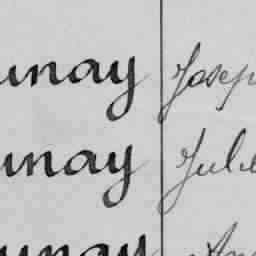 unay Josep
unay Jule
unay